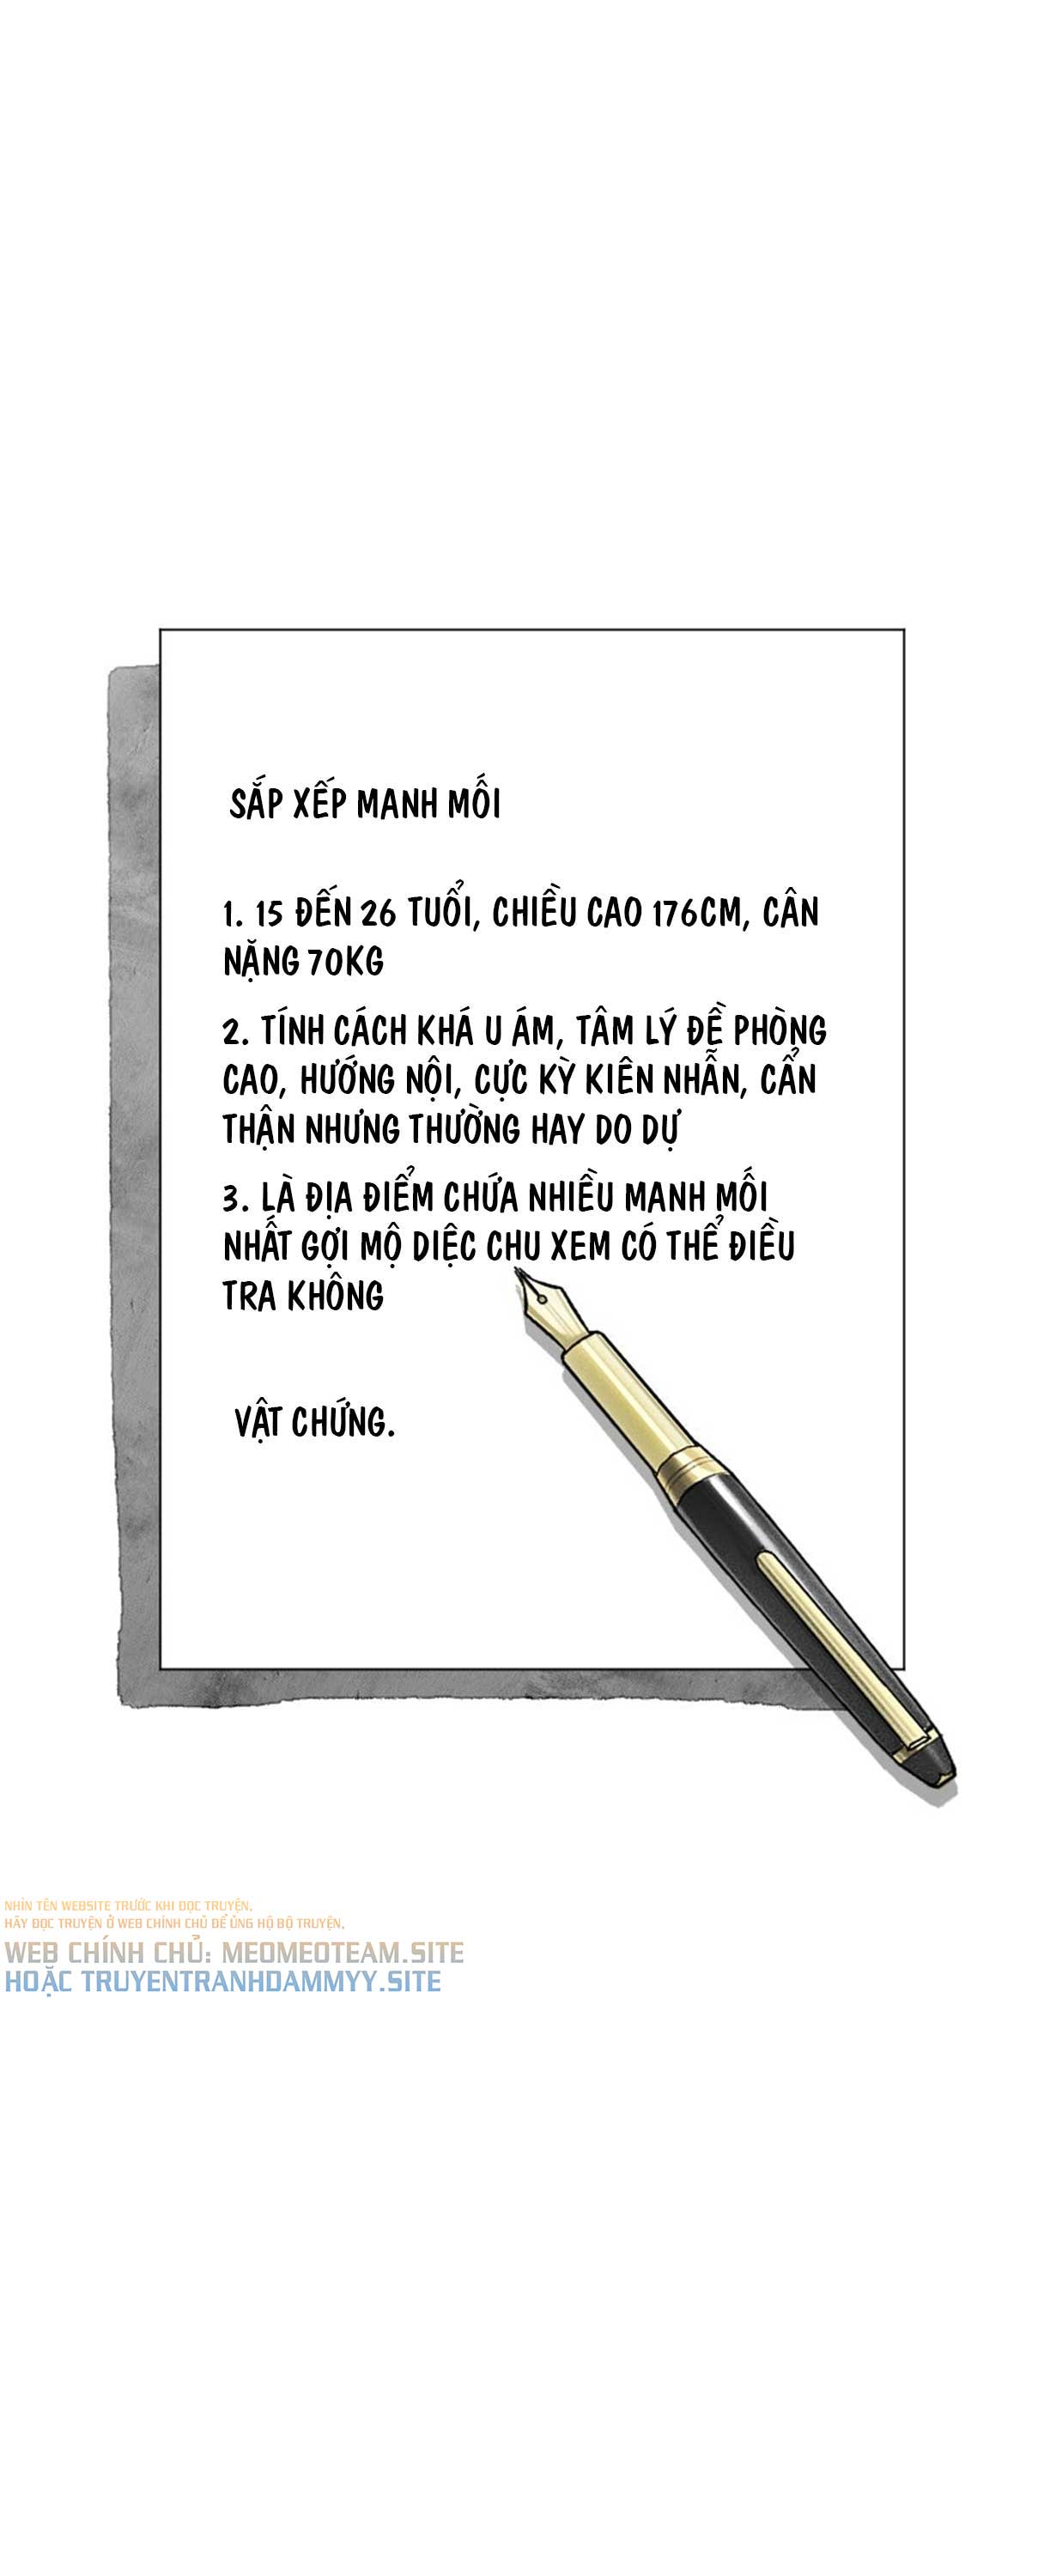 SẮP XẾP MANH MỐI
1. 15 ĐẾN 26 TUỔI, CHIỀU CAO 176CM, CÂN
NẶNG 70KG
2. TÍNH CÁCH KHÁ U ÁM, TÂM LÝ ĐỀ PHÒNG
CAO, HƯỚNG NỘI, CỰC KỲ KIÊN NHẪN, CẨN
THẬN NHƯNG THƯỜNG HAY DO DỰ
3. LÀ ĐỊA ĐIỂM CHỨA NHIỀU MANH MỐI
NHẤT GỢI MỘ DIỆC CHU XEM CÓ THỂ ĐIỀU
TRA KHÔNG
VẬT CHỨNG.
NHÌN TÊN WEBSITE TRƯỚC KHI ĐỌC TRUYỆN,
HÃY ĐỌC TRUYỆN Ở WEB CHÍNH CHỦ ĐỂ ỦNG HỘ BỘ TRUYỆN,
WEB CHÍNH CHỦ: MEOMEOTEAM.SITE
HOẶC TRUYENTRANHDAMMYY.SITE